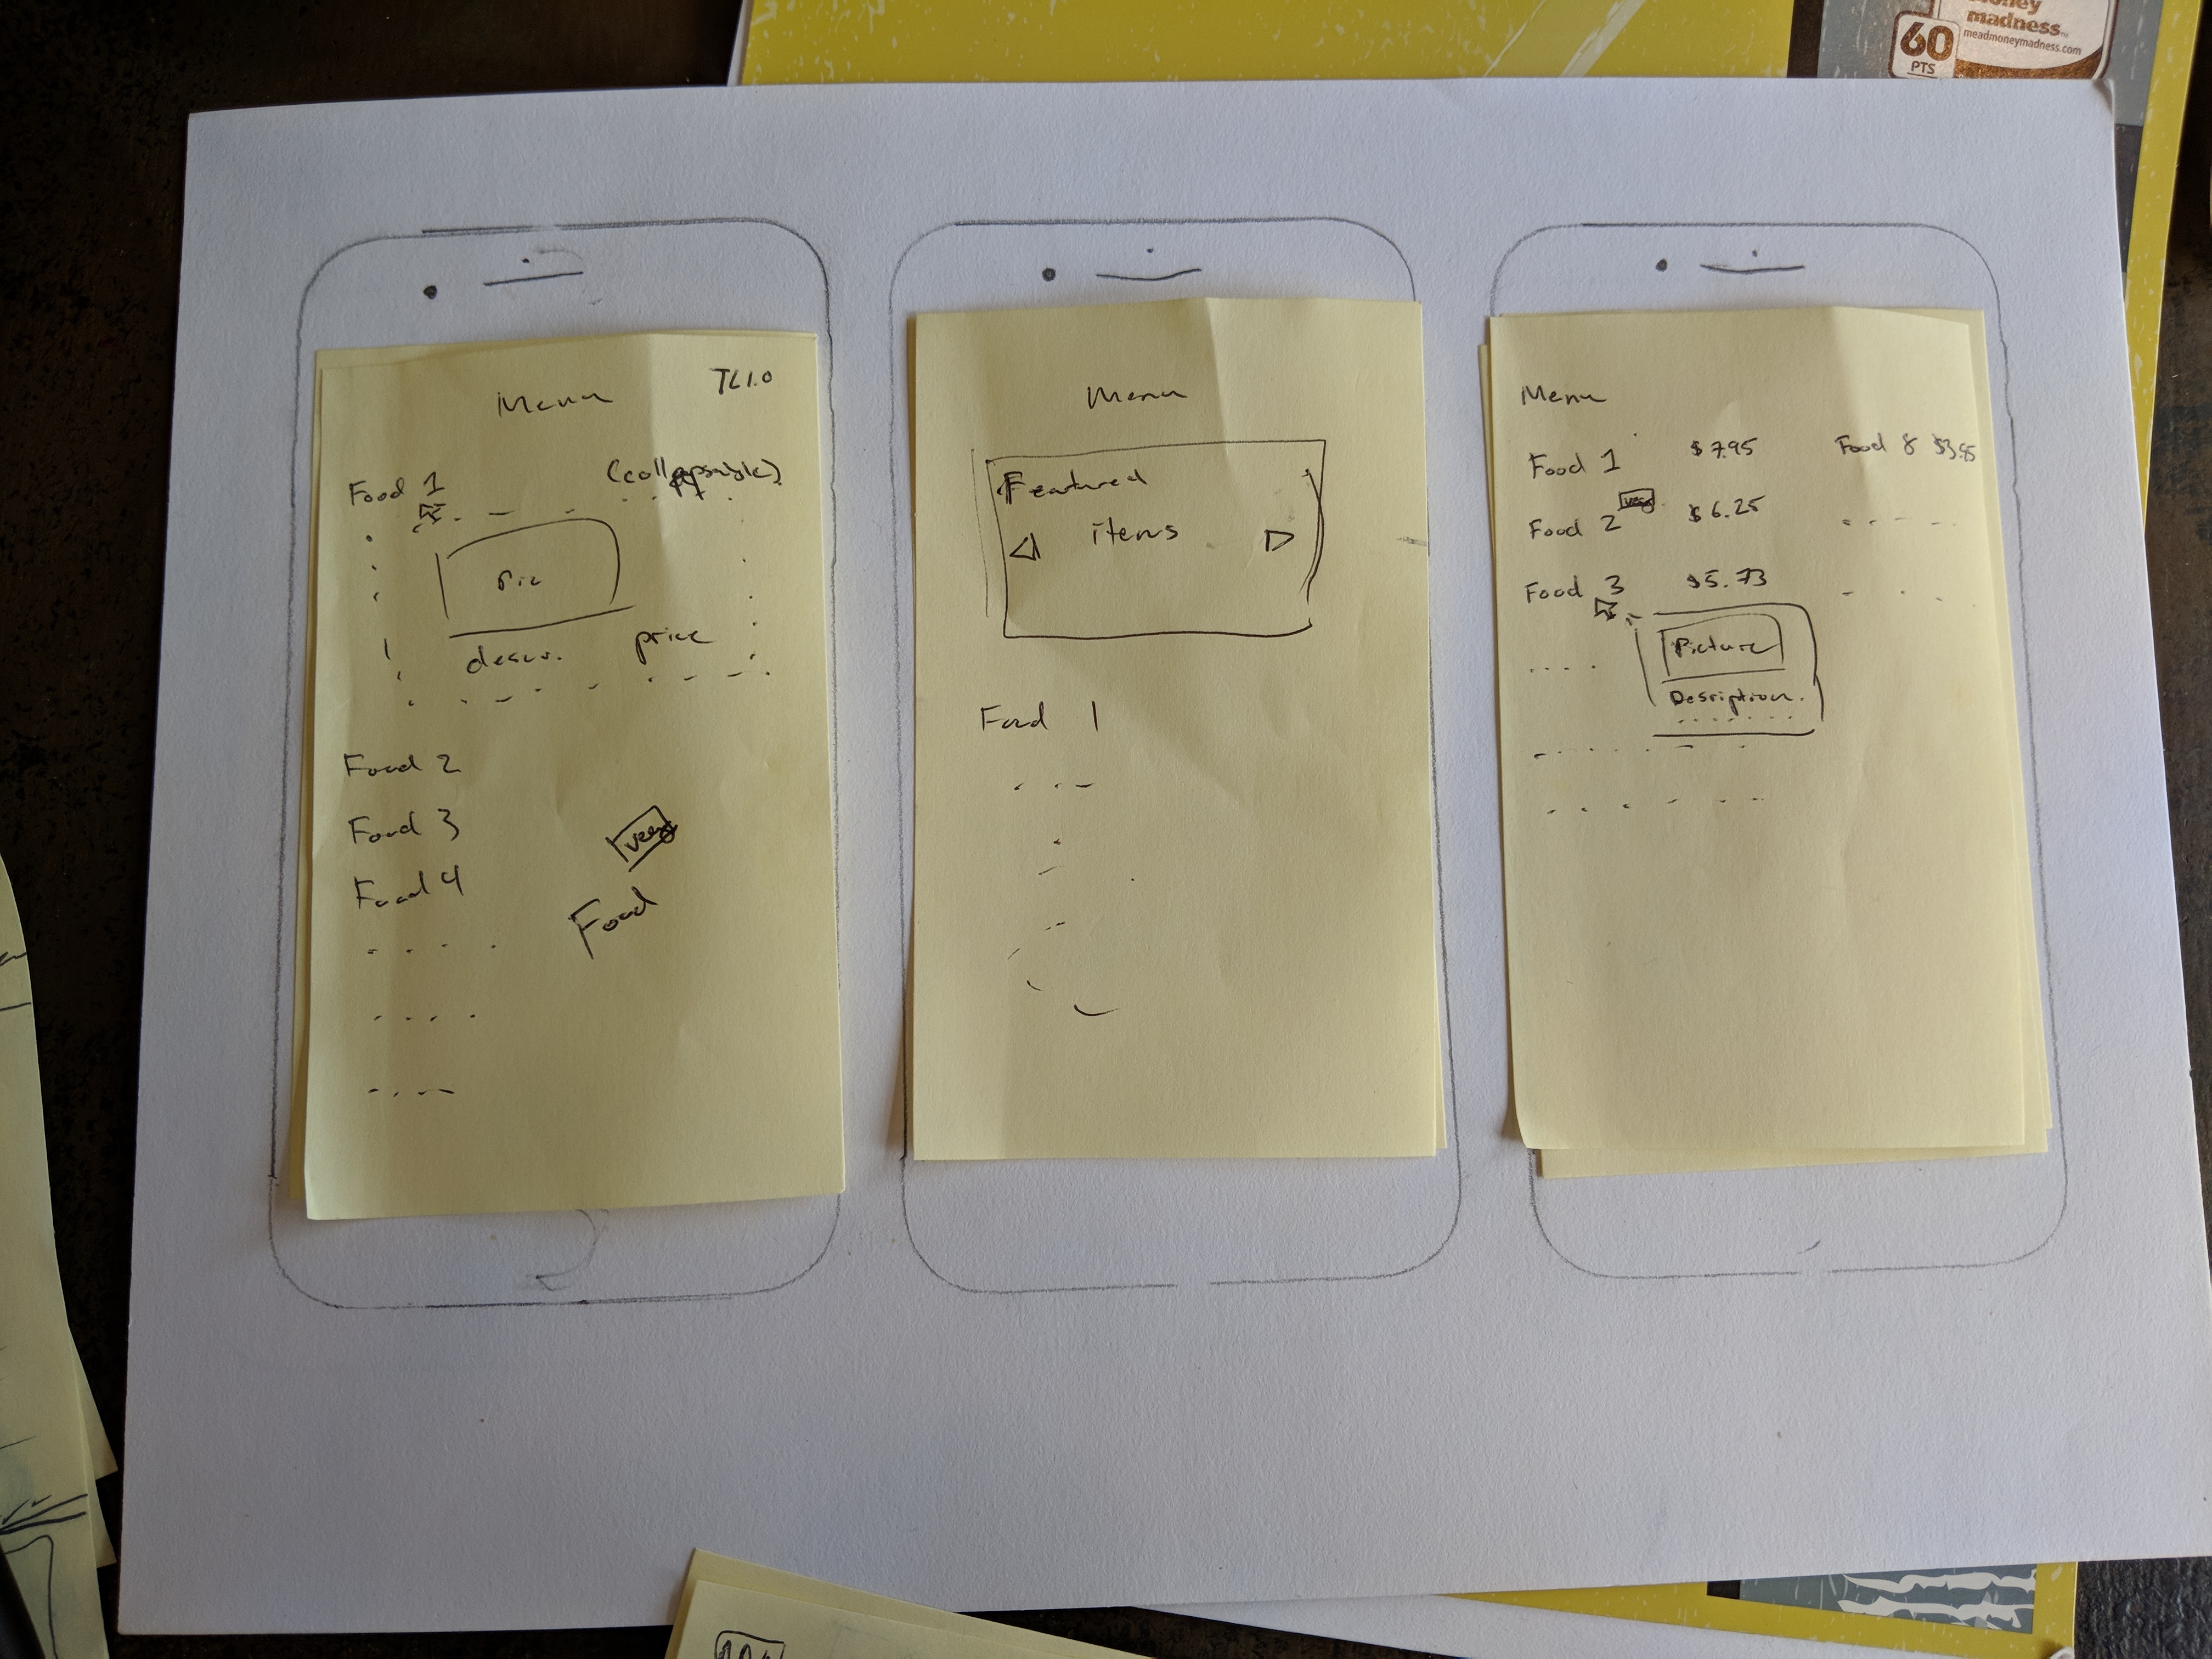 madness
meadmoneymadness.com
60
PTS
Menu
Food 1
(collapsable)
Pic
descr. price
Food 2
Food 3
Food 4
veg
Food
Menu
Featured
items
Food 1
Menu
Food 1 $7.95 Food 8
veg
Food 2 $6.25
Food 3 $5.73
Picture
Description.